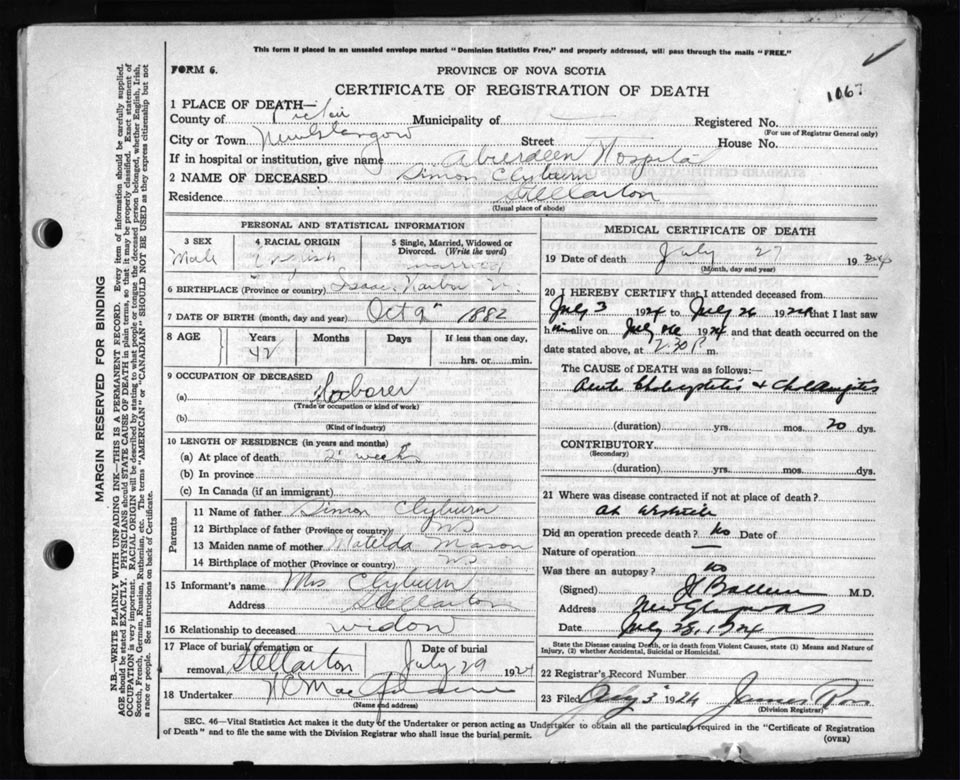 This form if placed in an unsealed envelope marked "Dominion Statistics Free," and properly addressed, will pass through the mails "FREE."
FORM 6.
PROVINCE OF NOVA SCOTIA
CERTIFICATE OF REGISTRATION OF DEATH
1067
1 PLACE OF DEATH—
County of Pictou Municipality of Registered No.
(For use of Registrar General only)
City or Town New Glasgow Street House No.
If in hospital or institution, give name Aberdeen Hospital
2 NAME OF DECEASED Simon Clyburn
Residence Stellarton
(Usual place of abode)
PERSONAL AND STATISTICAL INFORMATION
3 SEX 4 RACIAL ORIGIN 5 Single, Married, Widowed or Divorced. (Write the word)
Male married
6 BIRTHPLACE (Province or country) Isaac Harbor
7 DATE OF BIRTH (month, day and year) Oct 9 1882
8 AGE Years Months Days If less than one day,
42 hrs. or min.
9 OCCUPATION OF DECEASED
(a) Laborer
(Trade or occupation or kind of work)
(b)
(Kind of industry)
10 LENGTH OF RESIDENCE (in years and months)
(a) At place of death 2 weeks
(b) In province
(c) In Canada (if an immigrant)
Parents
11 Name of father Simon Clyburn
12 Birthplace of father (Province or country) NS
13 Maiden name of mother Matilda Mason
14 Birthplace of mother (Province or country) NS
15 Informant's name Mrs Clyburn
Address Stellarton
16 Relationship to deceased widow
17 Place of burial cremation or removal Stellarton Date of burial July 29 1924
18 Undertaker
(Name and address)
MEDICAL CERTIFICATE OF DEATH
19 Date of death July 27 19
(Month, day and year)
20 I HEREBY CERTIFY that I attended deceased from
July 3 1924 to July 26 1924 that I last saw
him alive on July 1924 and that death occurred on the
date stated above, at 2.30 P m.
The CAUSE OF DEATH was as follows:—
Acute Cholecystitis & Cholangitis
(duration) yrs. mos. 20 dys.
CONTRIBUTORY.
(Secondary)
(duration) yrs. mos. dys.
21 Where was disease contracted if not at place of death?
at
Did an operation precede death? no Date of
Nature of operation —
Was there an autopsy? no
(Signed) M.D.
Address New Glasgow NS
Date July 28, 1924
State the Disease causing Death, or in death from Violent Causes, state (1) Means and Nature of Injury, (2) whether Accidental, Suicidal or Homicidal.
22 Registrar's Record Number
23 Filed 3 1924 James Ross
(Division Registrar)
SEC. 46—Vital Statistics Act makes it the duty of the Undertaker or person acting as Undertaker to obtain all the particulars required in the "Certificate of Registration
of Death" and to file the same with the Division Registrar who shall issue the burial permit.
(OVER)
MARGIN RESERVED FOR BINDING
N.B.—WRITE PLAINLY WITH UNFADING INK—THIS IS A PERMANENT RECORD. Every item of information should be carefully supplied.
AGE should be stated EXACTLY. PHYSICIANS should STATE CAUSE OF DEATH in plain terms, so that it may be properly classified. Exact statement of
OCCUPATION is very important. RACIAL ORIGIN will be described by stating to what people or tongue the deceased person belonged, whether English, Irish,
Scotch, French, German, Russian, Ruthenian, etc. The terms "AMERICAN" or "CANADIAN" SHOULD NOT BE USED as they express citizenship but not
a race or people. See instructions on back of Certificate.